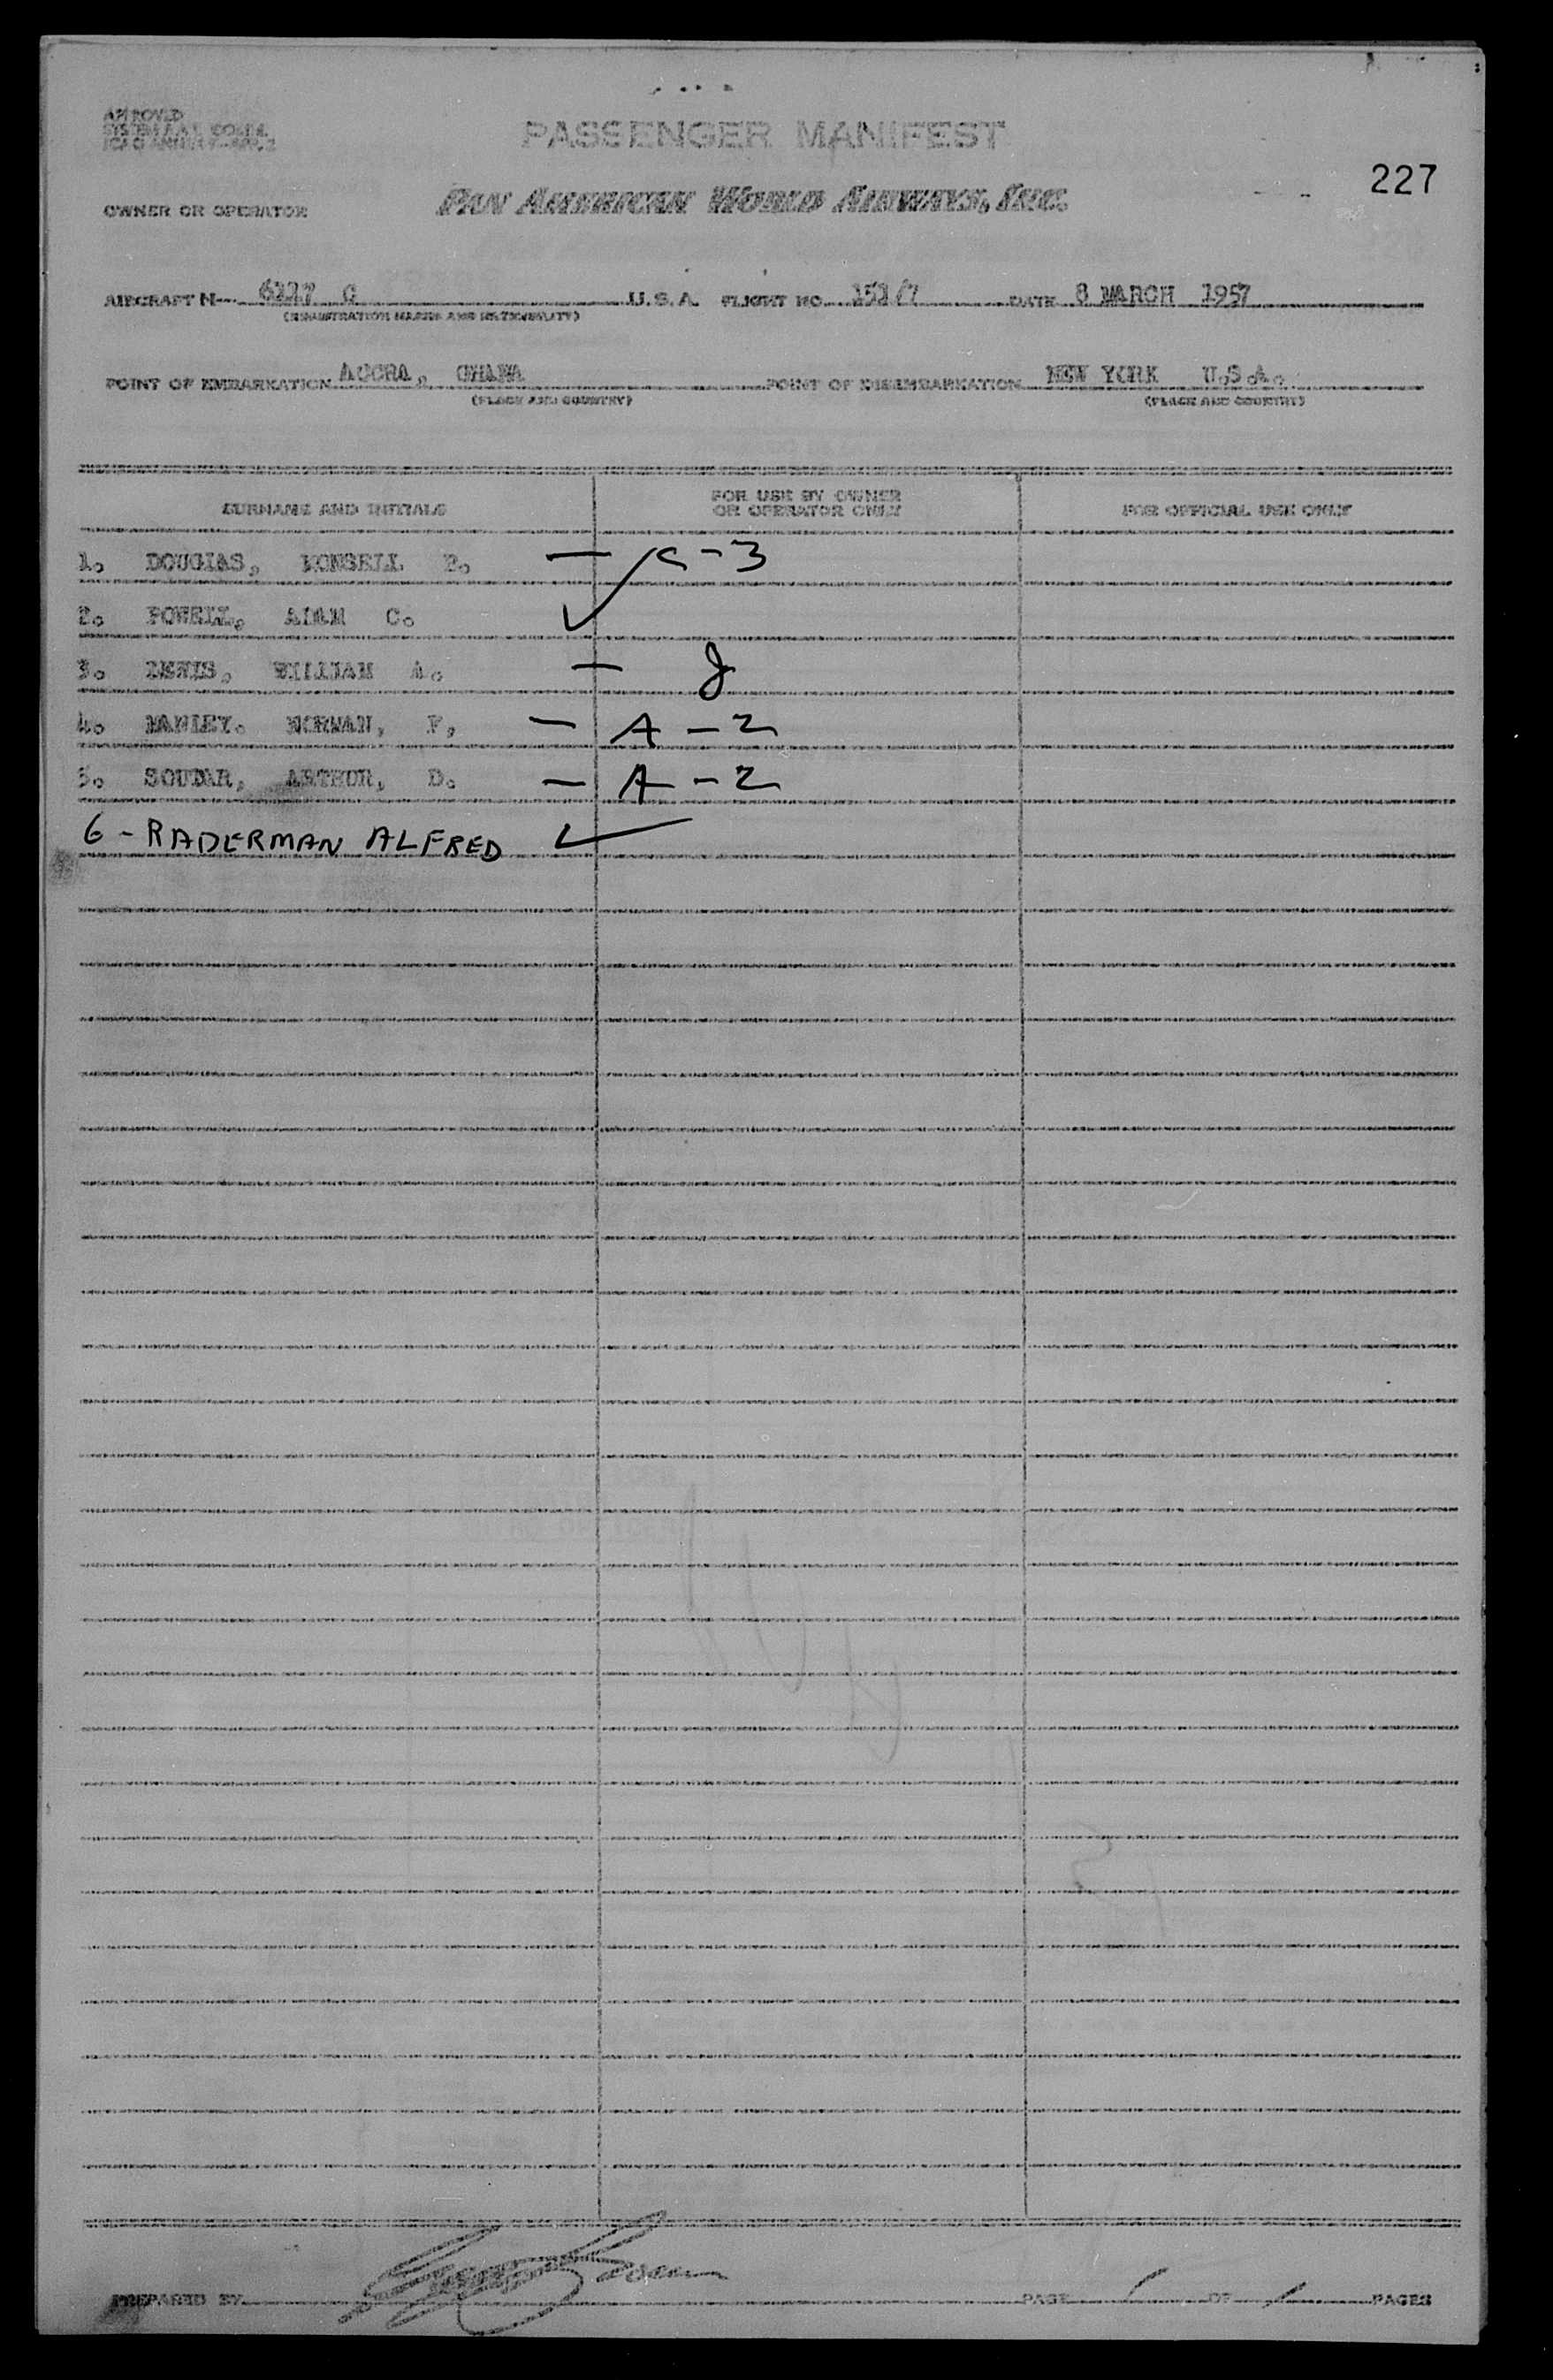 APPROVED
227
PASSENGER MANIFEST
OWNER OR OPERATOR PAN AMERICAN WORLD AIRWAYS, INC.
AIRCRAFT N- 6117 C U.S.A. FLIGHT NO. 151/7 DATE 8 MARCH 1957
(REGISTRATION MARKS AND NATIONALITY)
POINT OF EMBARKATION ACCRA, GHANA POINT OF DISEMBARKATION NEW YORK U.S.A.
(PLACE AND COUNTRY) (PLACE AND COUNTRY)
SURNAME AND INITIALS FOR USE BY OWNER OR OPERATOR ONLY FOR OFFICIAL USE ONLY
1. DOUGLAS, — C-3
2. POWELL, ADAM C. ✓
3. LEWIS, WILLIAM A. —
4. MANLEY. NORMAN, — A-2
5. SOUTAR, ARTHUR, D. — A-2
6 - RADERMAN ALFRED ✓
PREPARED BY PAGE 1 OF 1 PAGES